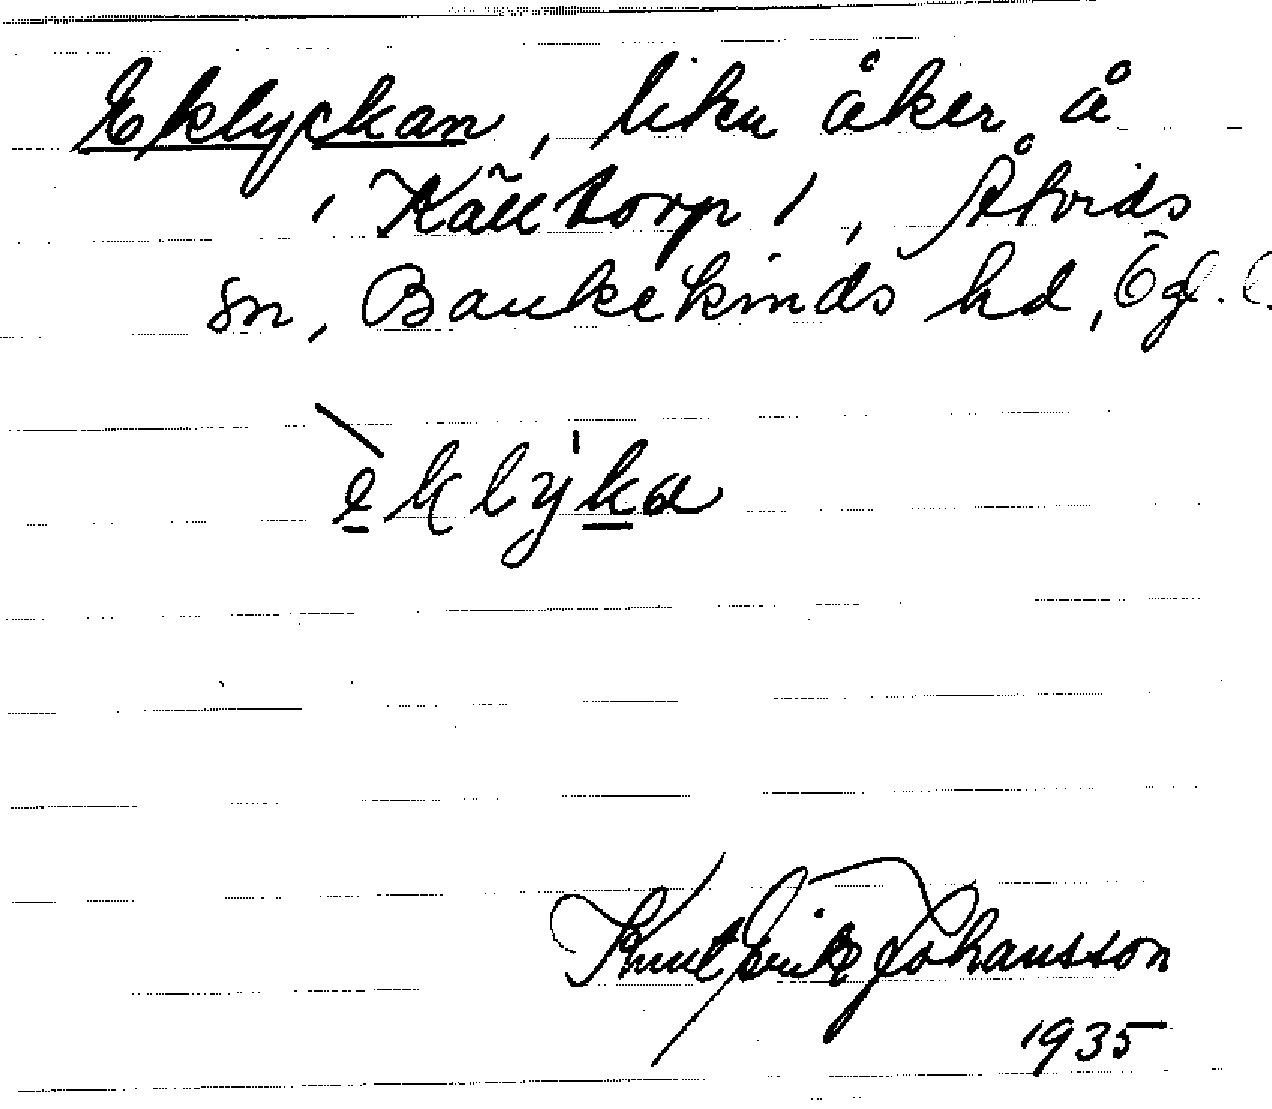 Eklyckan, liten åker å
/ Källtorp /, Åtvids
sn, Bankekinds hd, Ögl. l.
èklýka
Knut Erik Johansson
1935